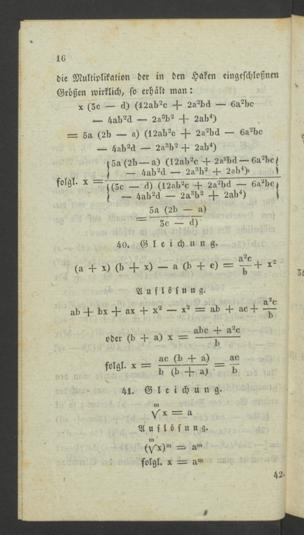 16
die Multiplikation der in den Haken eingeschloßnen
Größen wirklich, so erhält man:
x (3c — d) (12ab²c + 2a²bd — 6a²bc
— 4ab²d — 2a³b² + 2ab⁴)
= 5a (2b — a) (12ab²c + 2a²bd — 6a²bc
— 4ab²d — 2a³b² + 2ab⁴)
folgl. x = {5a (2b — a) (12ab²c + 2a²bd — 6a²bc
— 4ab²d — 2a³b² + 2ab⁴)}
{(3c — d) (12ab²c + 2a²bd — 6a²bc
— 4ab²d — 2a³b² + 2ab⁴)}
= 5a (2b — a)
3c — d)
40. Gleichung.
(a + x) (b + x) — a (b + c) = a²c/b + x²
Auflösung.
ab + bx + ax + x² — x² = ab + ac + a²c/b
oder (b + a) x = abc + a²c/b
folgl. x = ac (b + a)/b (b + a) = ac/b
41. Gleichung.
ᵐ√x = a
Auflösung.
(ᵐ√x)ᵐ = aᵐ
folgl. x = aᵐ
42.